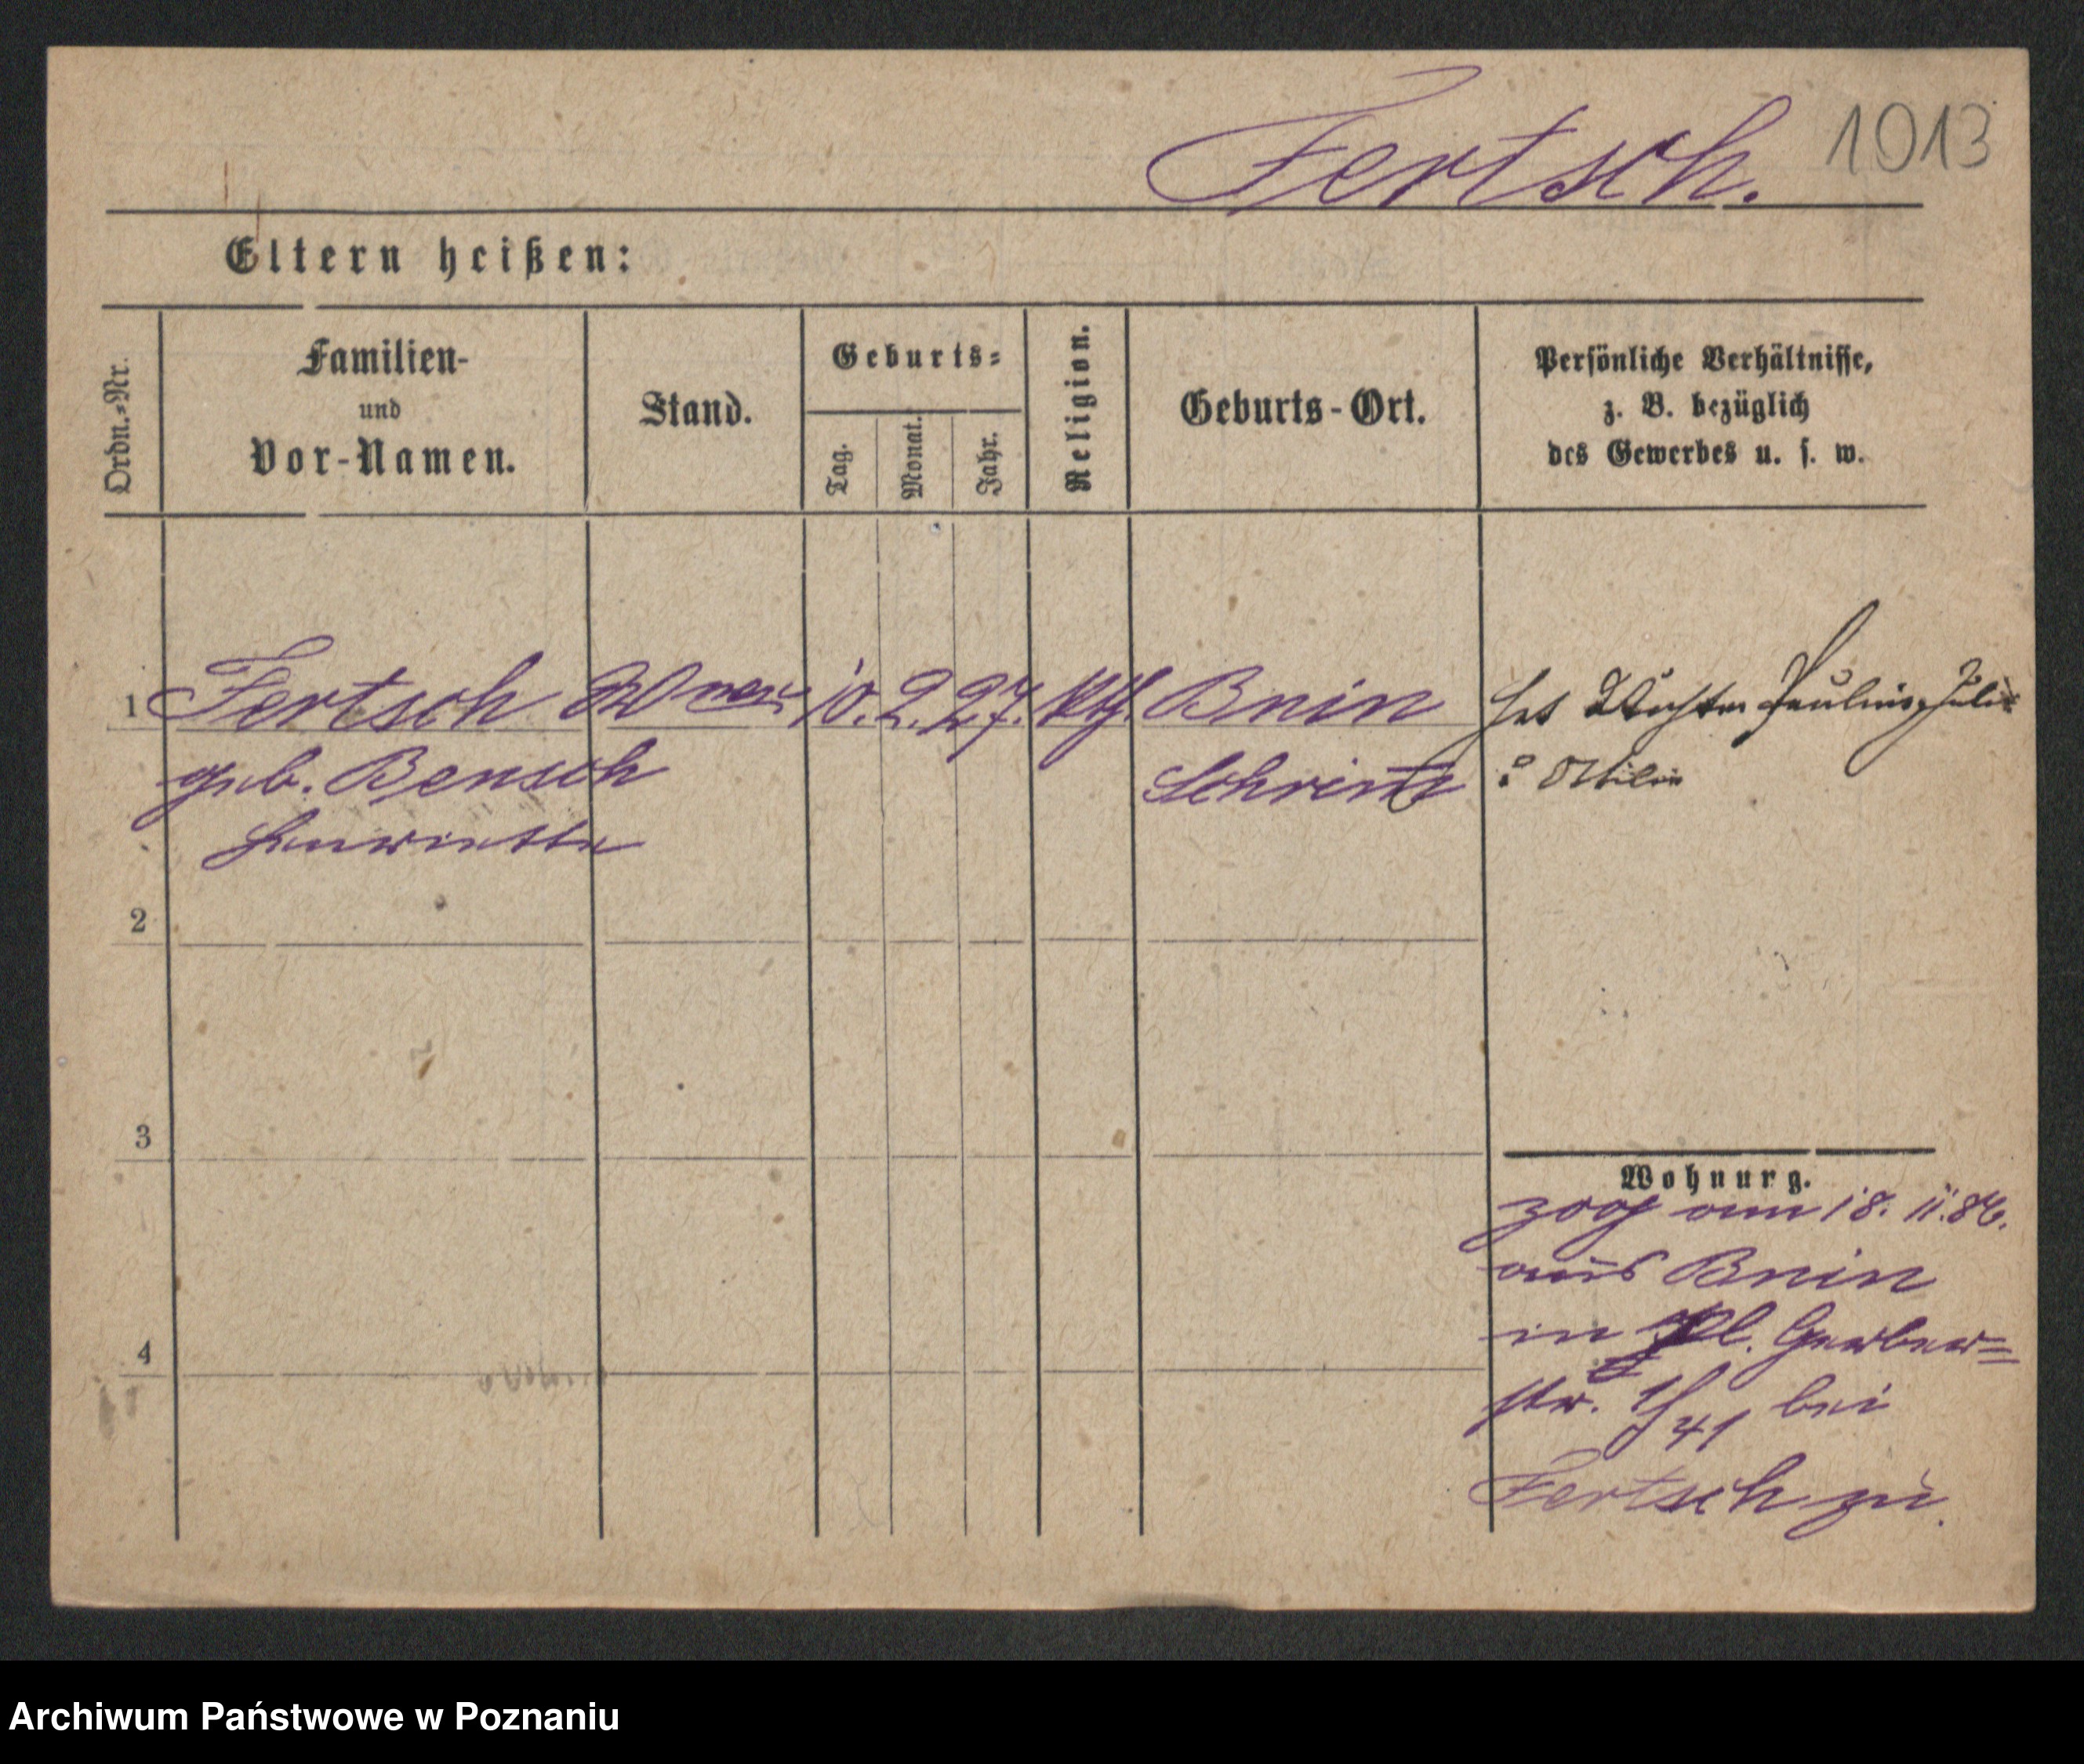 Fertsch. 1013
Eltern heißen:
Ordn.-Nr.
Familien-
und
Vor-Namen.
Stand.
Geburts-
Tag.
Monat.
Jahr.
Religion.
Geburts-Ort.
Persönliche Verhältnisse,
z. B. bezüglich
des Gewerbes u. s. w.
1 Fertsch 10. 2. 27. Kth. Bnin
geb. Bensch
Henriette
Kr. Schrimm
hat Töchter Pauline, Julie
u Ottilie
2
3
4
Wohnung.
zog am 18. 11. 86.
aus Bnin
in Kl. Gerber-
str. 1/41 bei
Fertsch zu.
Archiwum Państwowe w Poznaniu